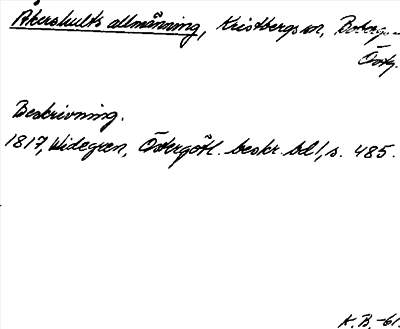 Åkershults allmänning, Kristbergs sn, Boberg...
Östg.
Beskrivning.
1817, Widegren, Östergötl. beskr. bd 1, s. 485.
K.B. -61.